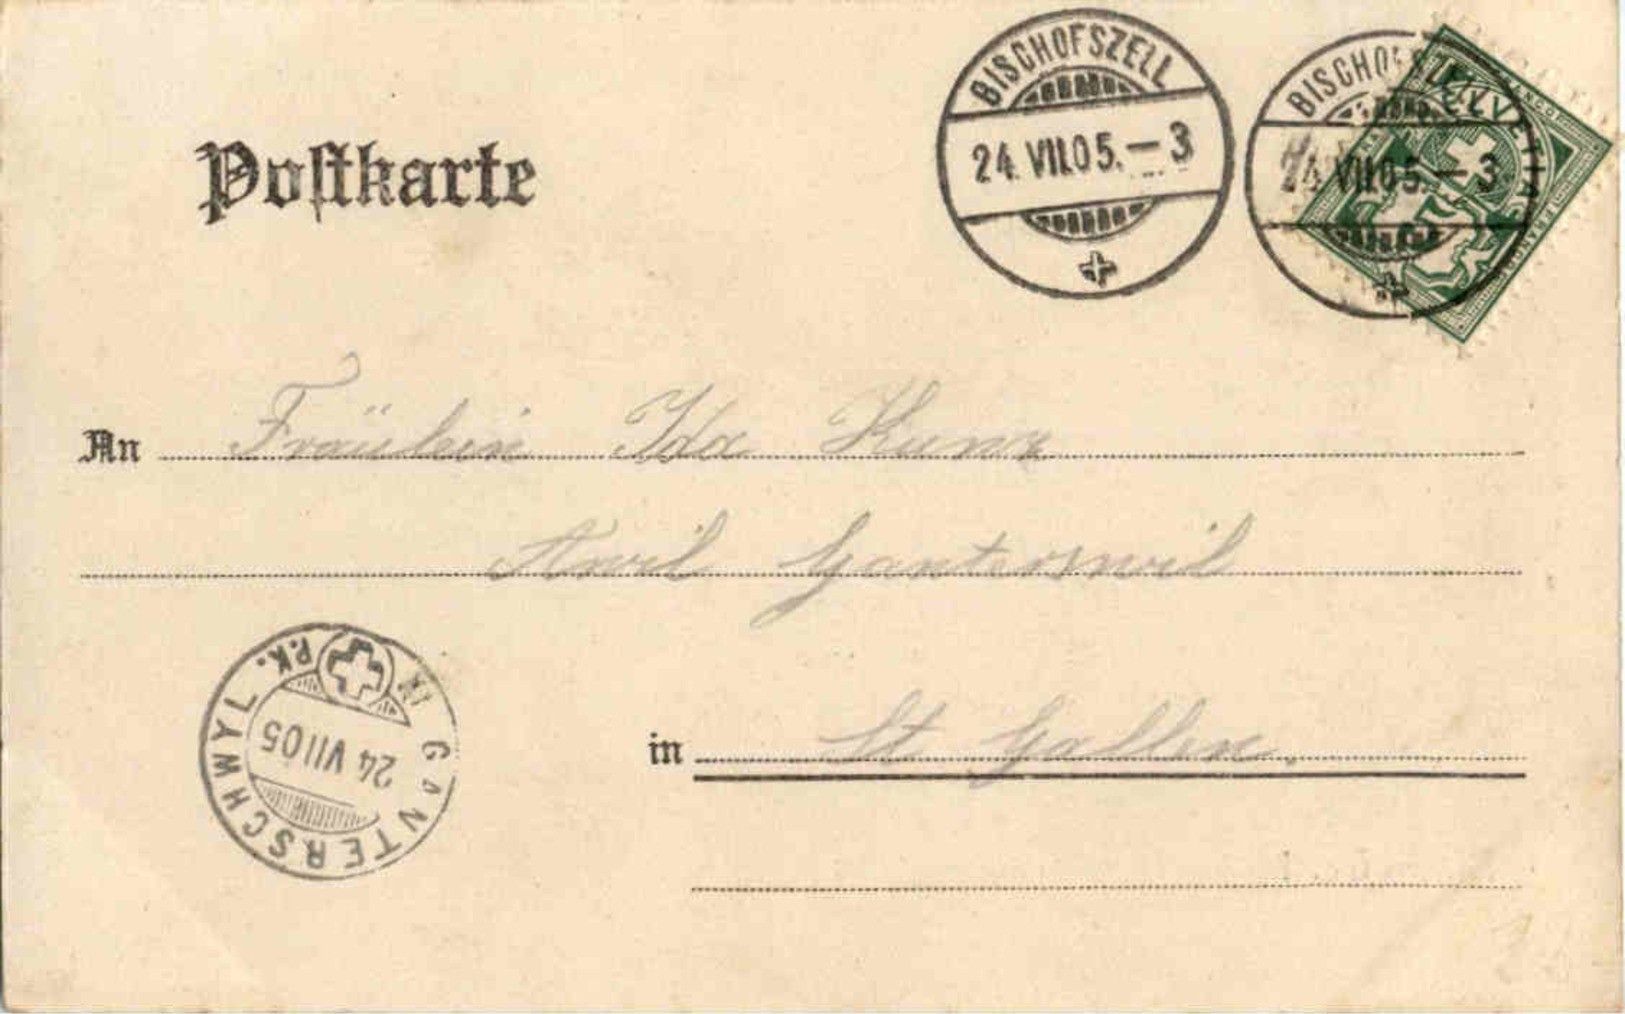 BISCHOFSZELL
24. VII.05.–3
BISCHOFSZELL
24. VII.05.–3
HELVETIA
FRANCO
Postkarte
An Fräulein Ida Kunz
Anwil Ganterswil
in St Gallen.
GANTERSCHWYL P.K.
24 VII 05